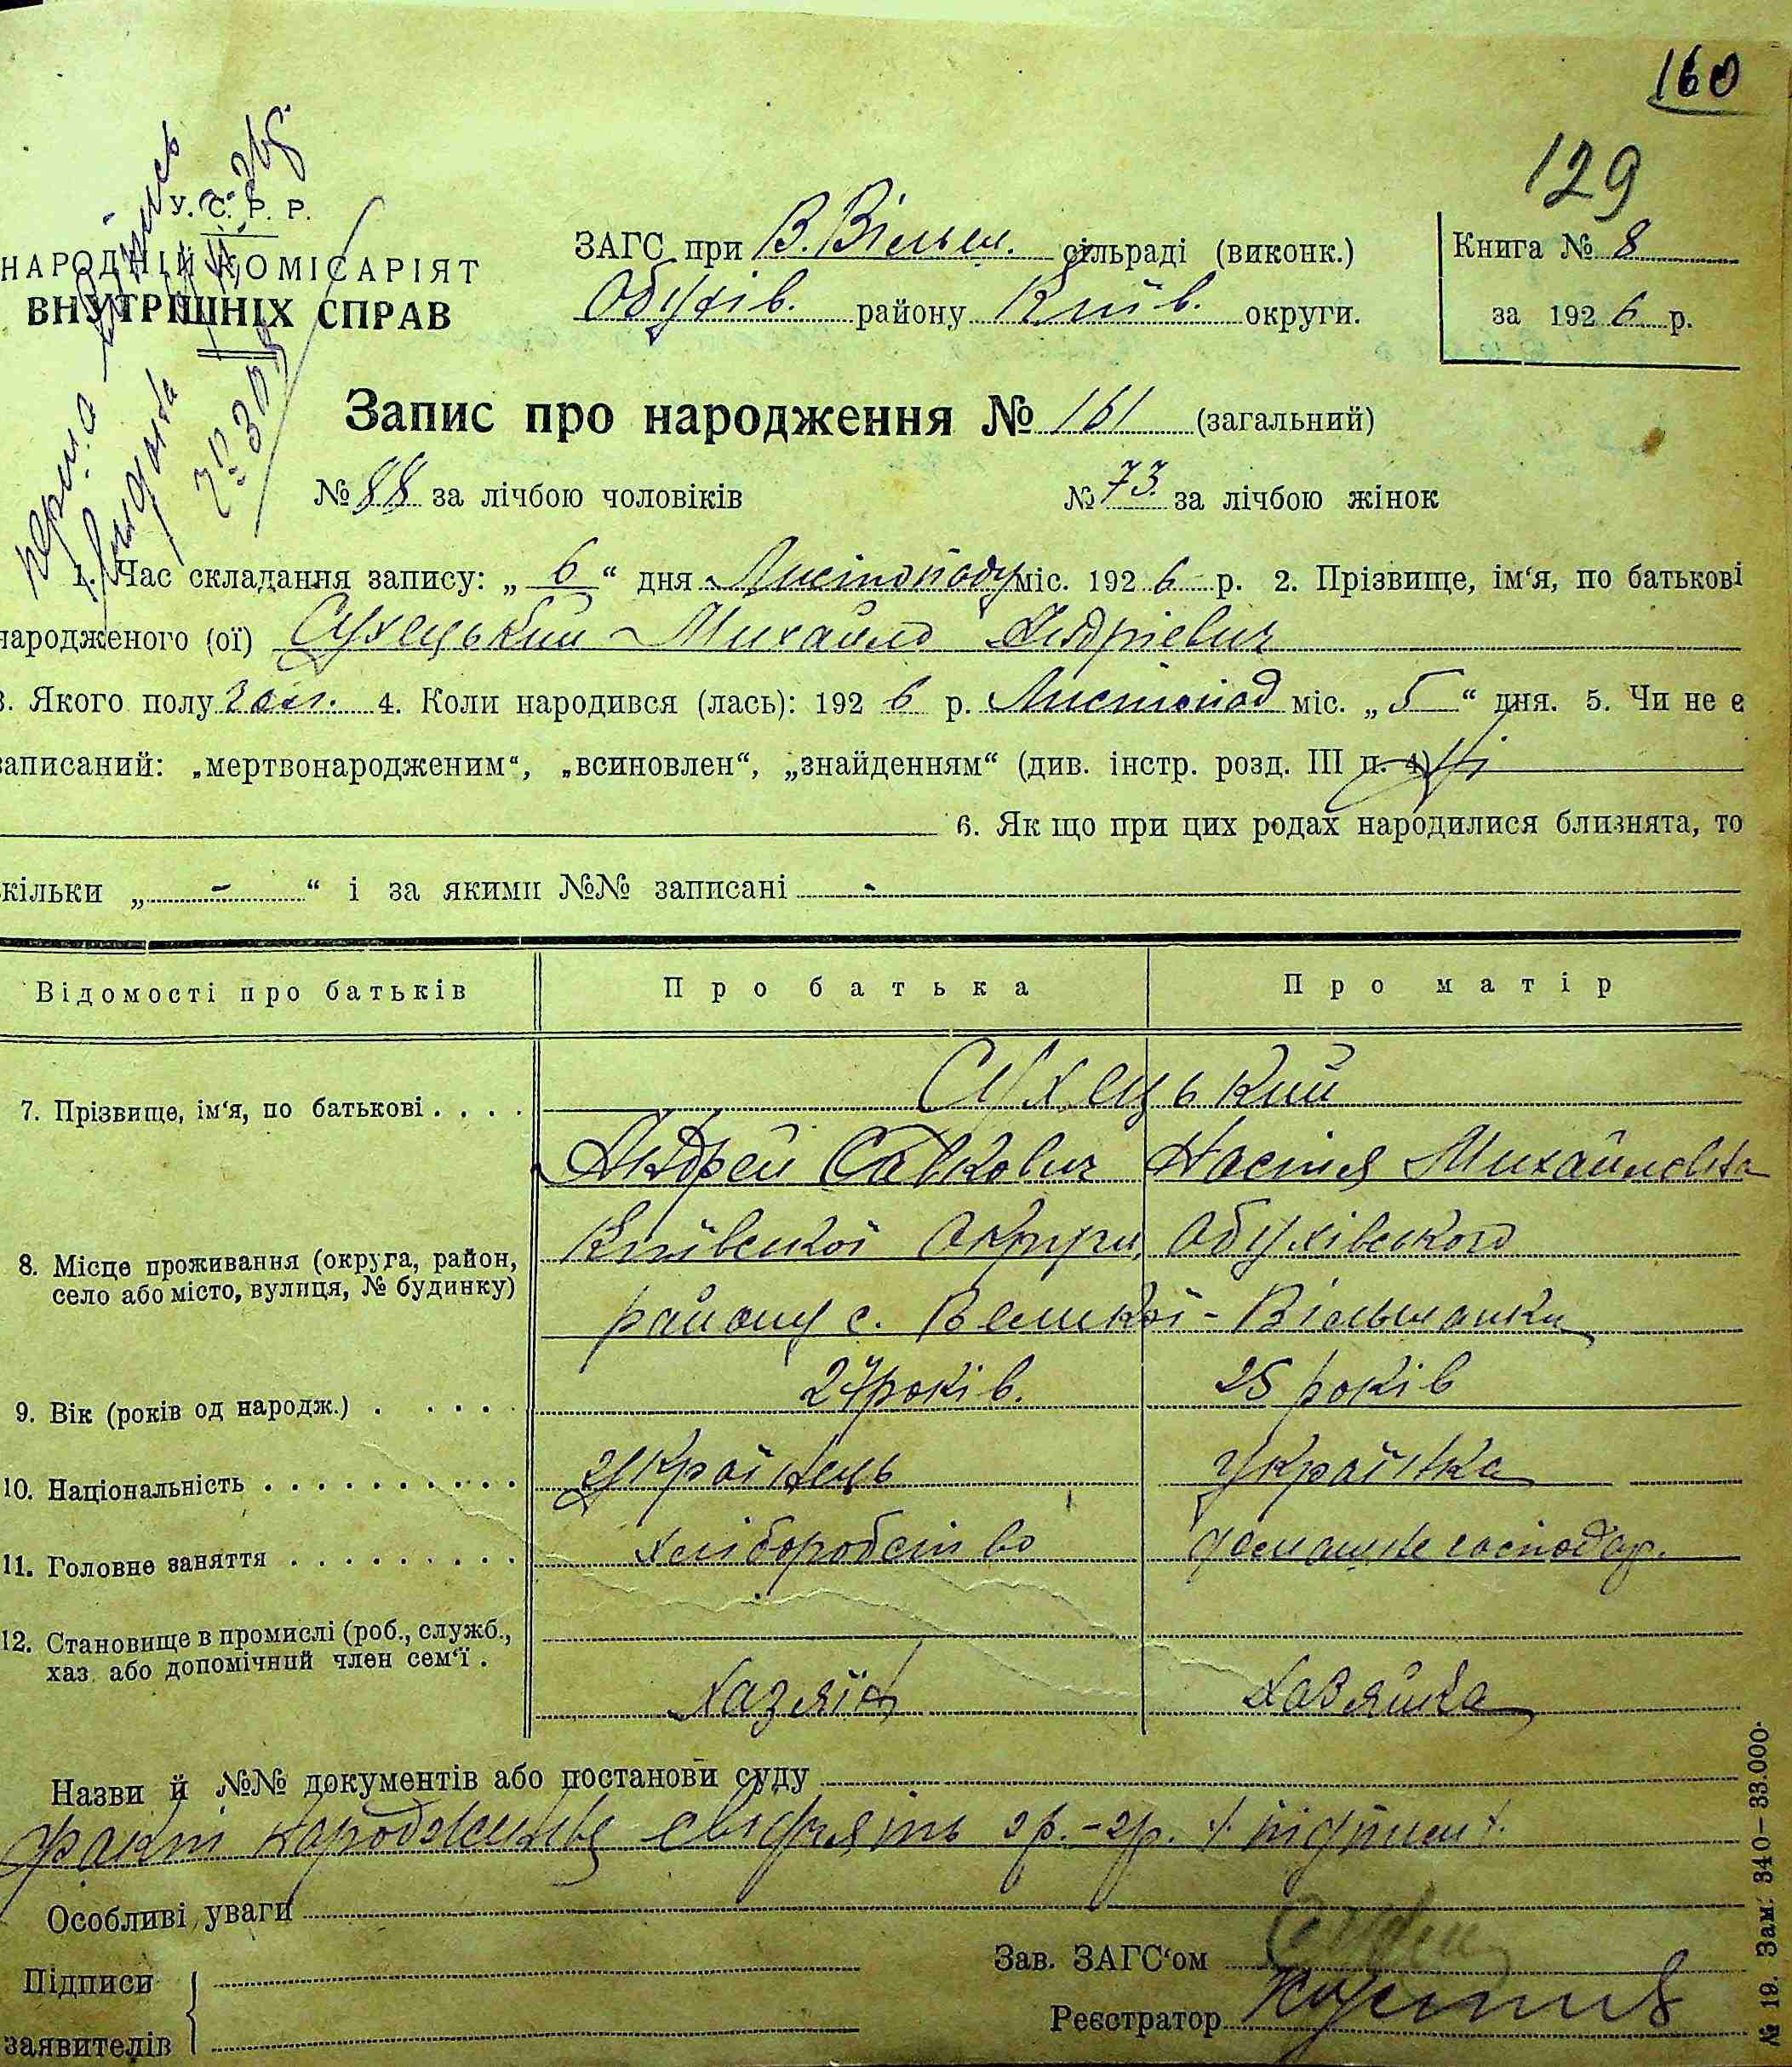 160
129
У. С. Р. Р.
НАРОДНІЙ КОМІСАРІЯТ
ВНУТРІШНІХ СПРАВ
ЗАГС при В. Вільш. сільраді (виконк.)
Обухів. району Київ. округи.
Книга № 8
за 1926 р.
Запис про народження № 161 (загальний)
№ 88 за лічбою чоловіків № 73 за лічбою жінок
1. Час складання запису: „ 6 “ дня Листопаду міс. 1926 р. 2. Прізвище, ім‘я, по батькові
народженого (ої) Сухецький Михайло Андрієвич
3. Якого полу чол. 4. Коли народився (лась): 1926 р. Листопад міс. „ 5 “ дня. 5. Чи не є
записаний: „мертвонародженим“, „всиновлен“, „знайденням“ (див. інстр. розд. III п. 4) Ні
6. Як що при цих родах народилися близнята, то
кільки „ - “ і за якими №№ записані -
Відомості про батьків Про батька Про матір
7. Прізвище, ім‘я, по батькові . . . . Сухецький
Андрей Савкович Настя Михайловна
8. Місце проживання (округа, район, село або місто, вулиця, № будинку) Київської Округи, Обухівського
району с. Великої-Вільшанки
9. Вік (років од народж.) . . . . . 27 років. 25 років
10. Національність . . . . . . . . . . Українець Українка
11. Головне заняття . . . . . . . . . Хліборобство домашнє господар.
12. Становище в промислі (роб., служб., хаз. або допомічний член сем‘ї .
Хазяїн Хазяйка
Назви й №№ документів або постанови суду
факт народження свідчять гр.-гр.
Особливі уваги
Підписи
заявителів
Зав. ЗАГС‘ом
Реєстратор
№ 19. Зам. 340–33.000.